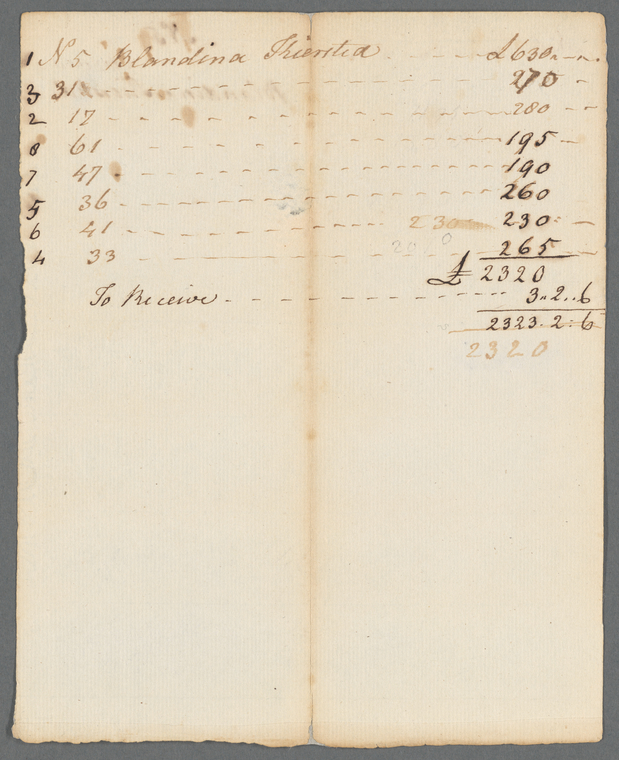 1 No 5 Blandina Kiersted - - - - £630 - -
3 31 - - - - 270 -
2 17 - - - - 280 -
8 61 - - - - 195 -
7 47 - - - - 190
5 36 - - - - 260
6 41 - - - - 230 230 -
4 33 - - - - 20 0 265
£ 2320
To Receive - - - - 3..2..6
2323.2:6
2320